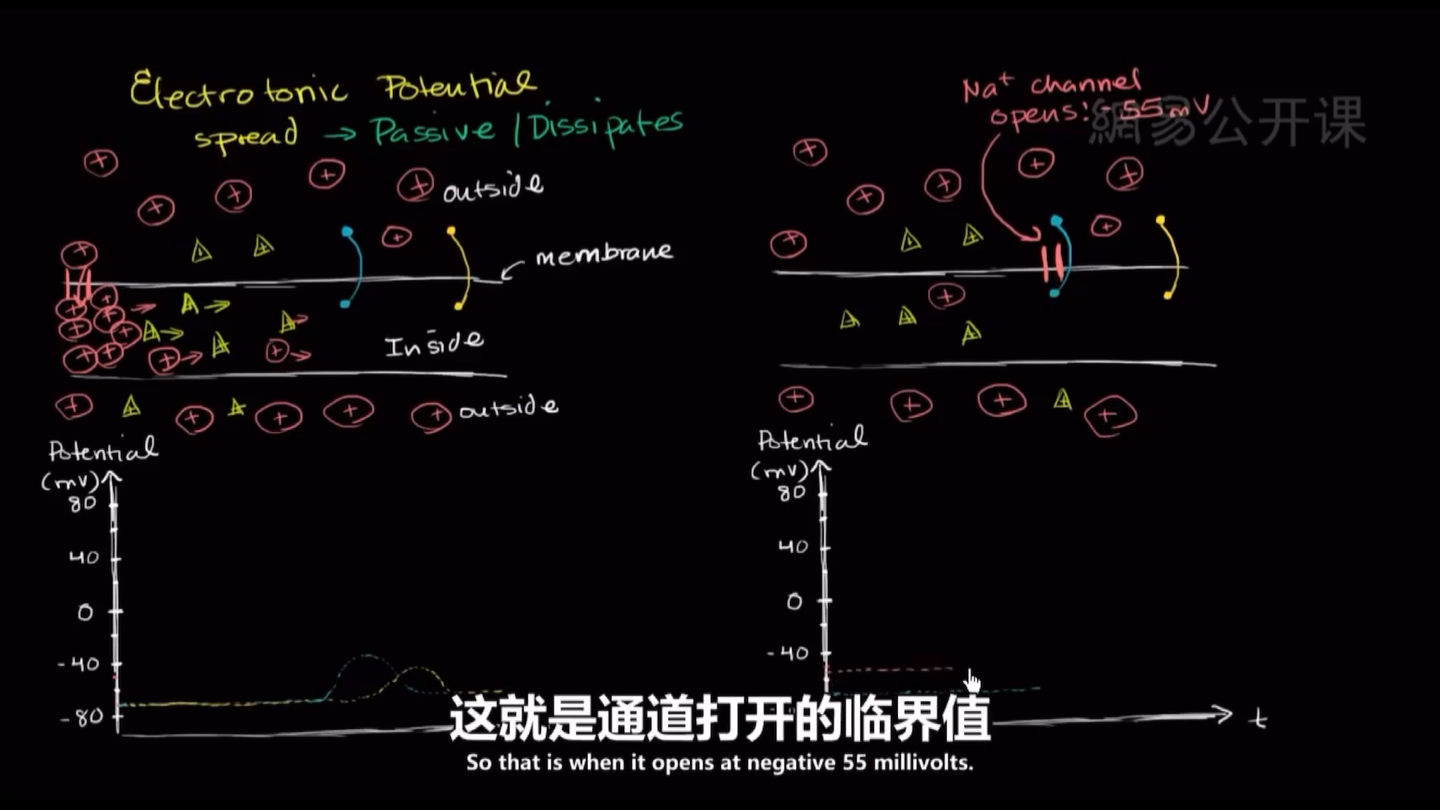 Electrotonic Potential
spread → Passive / Dissipates
outside
membrane
Inside
outside
Potential
(mV)
80
40
0
-40
-80
Na⁺ channel
opens: -55mV
網易公开课
Potential
(mV)
80
40
0
-40
t
这就是通道打开的临界值
So that is when it opens at negative 55 millivolts.